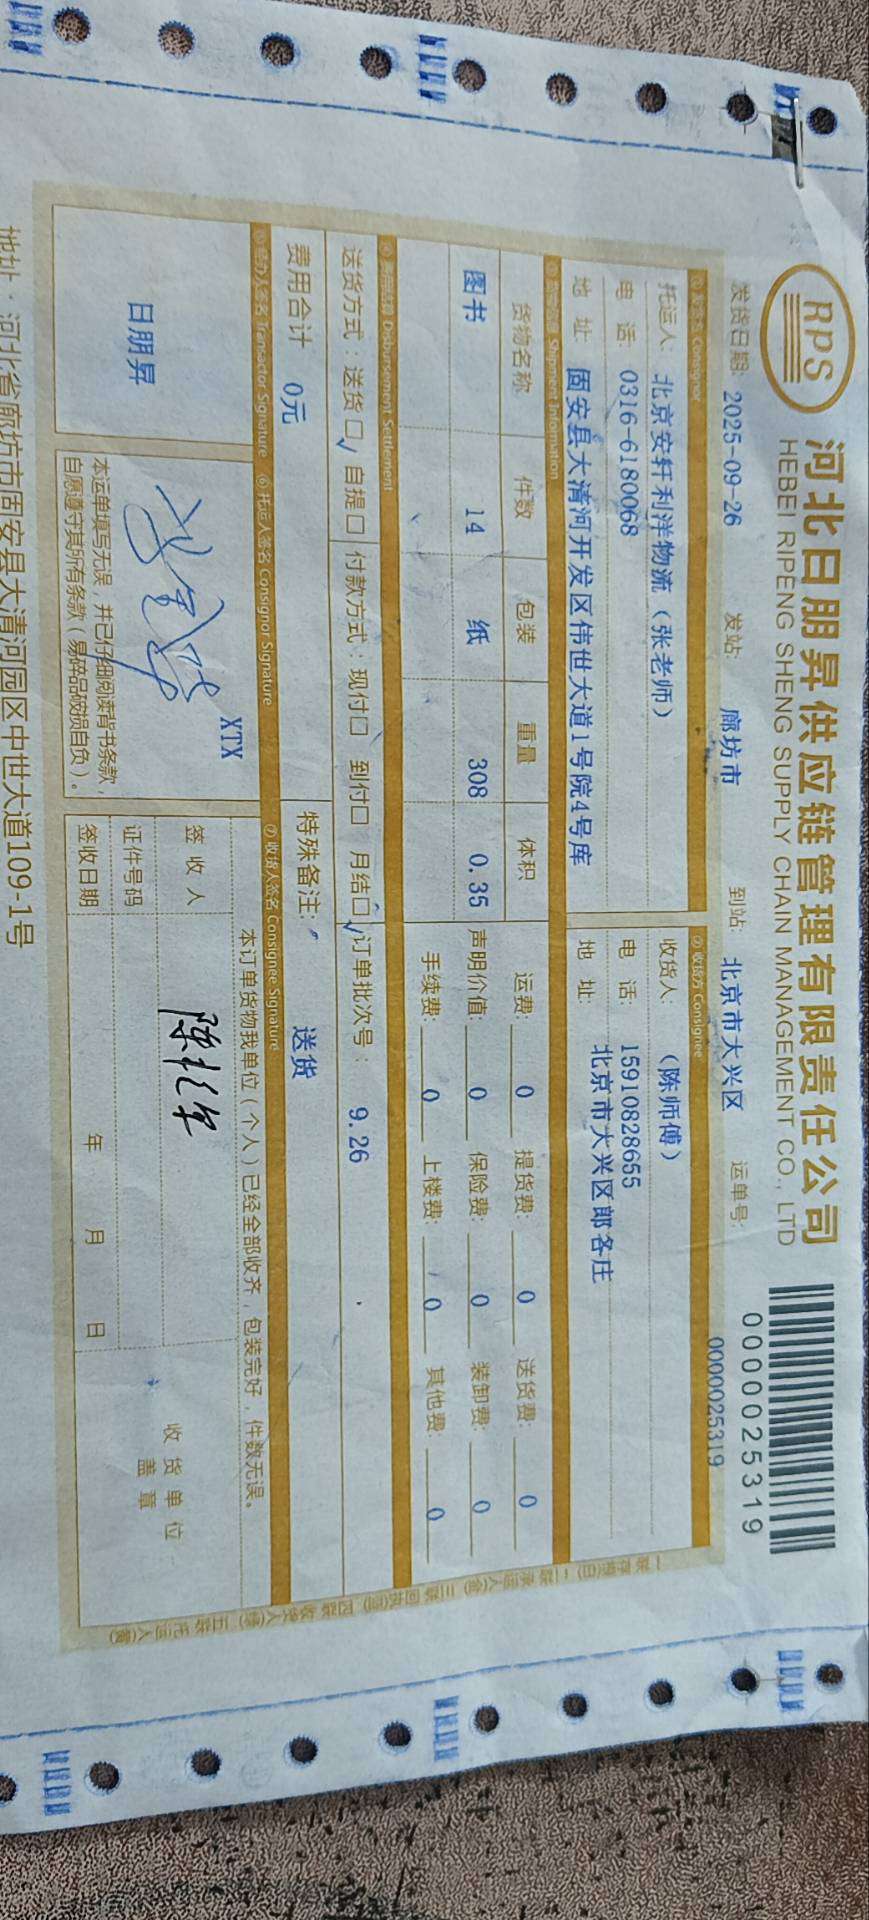 RPS
河北日朋昇供应链管理有限责任公司
HEBEI RIPENG SHENG SUPPLY CHAIN MANAGEMENT CO., LTD
0000025319
发货日期: 2025-09-26 发站: 廊坊市 到站: 北京市大兴区 运单号: 0000025319
① 发货方 Consignor
托运人: 北京安轩利洋物流（张老师）
电 话: 0316-6180068
地 址: 固安县大清河开发区伟世大道1号院4号库
② 收货方 Consignee
收货人: （陈师傅）
电 话: 15910828655
地 址: 北京市大兴区郎各庄
③ 货物信息 Shipment Information
货物名称 件数 包装 重量 体积
图书 14 纸 308 0.35
运费: 0 提货费: 0 送货费: 0
声明价值: 0 保险费: 0 装卸费: 0
手续费: 0 上楼费: 0 其他费: 0
④ Disbursement Settlement
送货方式：送货☐√ 自提☐ 付款方式：现付☐ 到付☐ 月结☐√ 订单批次号： 9.26
费用合计 0元 特殊备注: 送货
⑤ 经办人签名 Transactor Signature ⑥ 托运人签名 Consignor Signature ⑦ 收货人签名 Consignee Signature
日朋昇
XTX
本运单填写无误，并已仔细阅读背书条款
自愿遵守其所有条款（易碎品破损自负）。
本订单货物我单位（个人）已经全部收齐，包装完好，件数无误。
签 收 人
证件号码
签收日期 年 月 日
收 货 单 位
盖 章
地址：河北省廊坊市固安县大清河园区中世大道109-1号